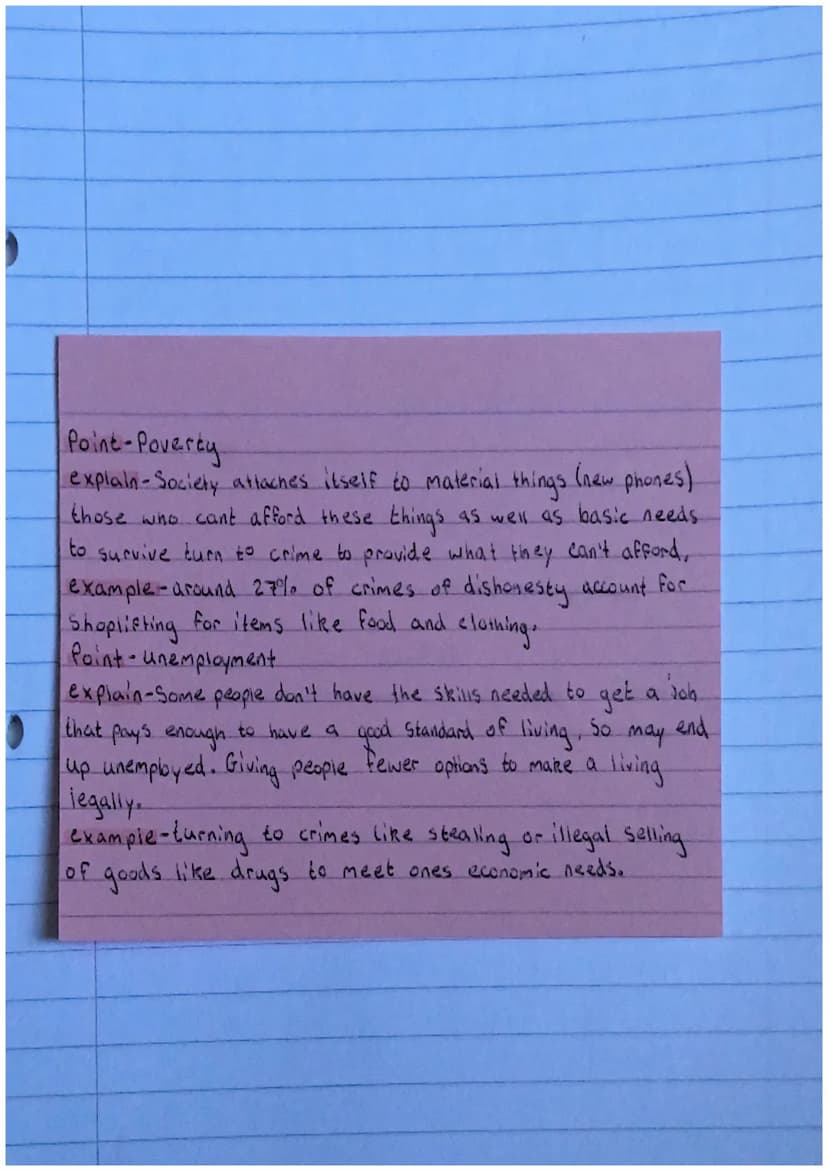 Point-Poverty
explain-Society attaches itself to material things (new phones)
those who cant afford these things as well as basic needs
to survive turn to crime to provide what they can't afford,
example-around 27% of crimes of dishonesty account for
shoplifting for items like food and clothing.
Point-unemployment
explain-Some people don't have the skills needed to get a job
that pays enough to have a good standard of living, so may end
up unemployed. Giving people fewer options to make a living
legally.
example-turning to crimes like stealing or illegal selling
of goods like drugs to meet ones economic needs.